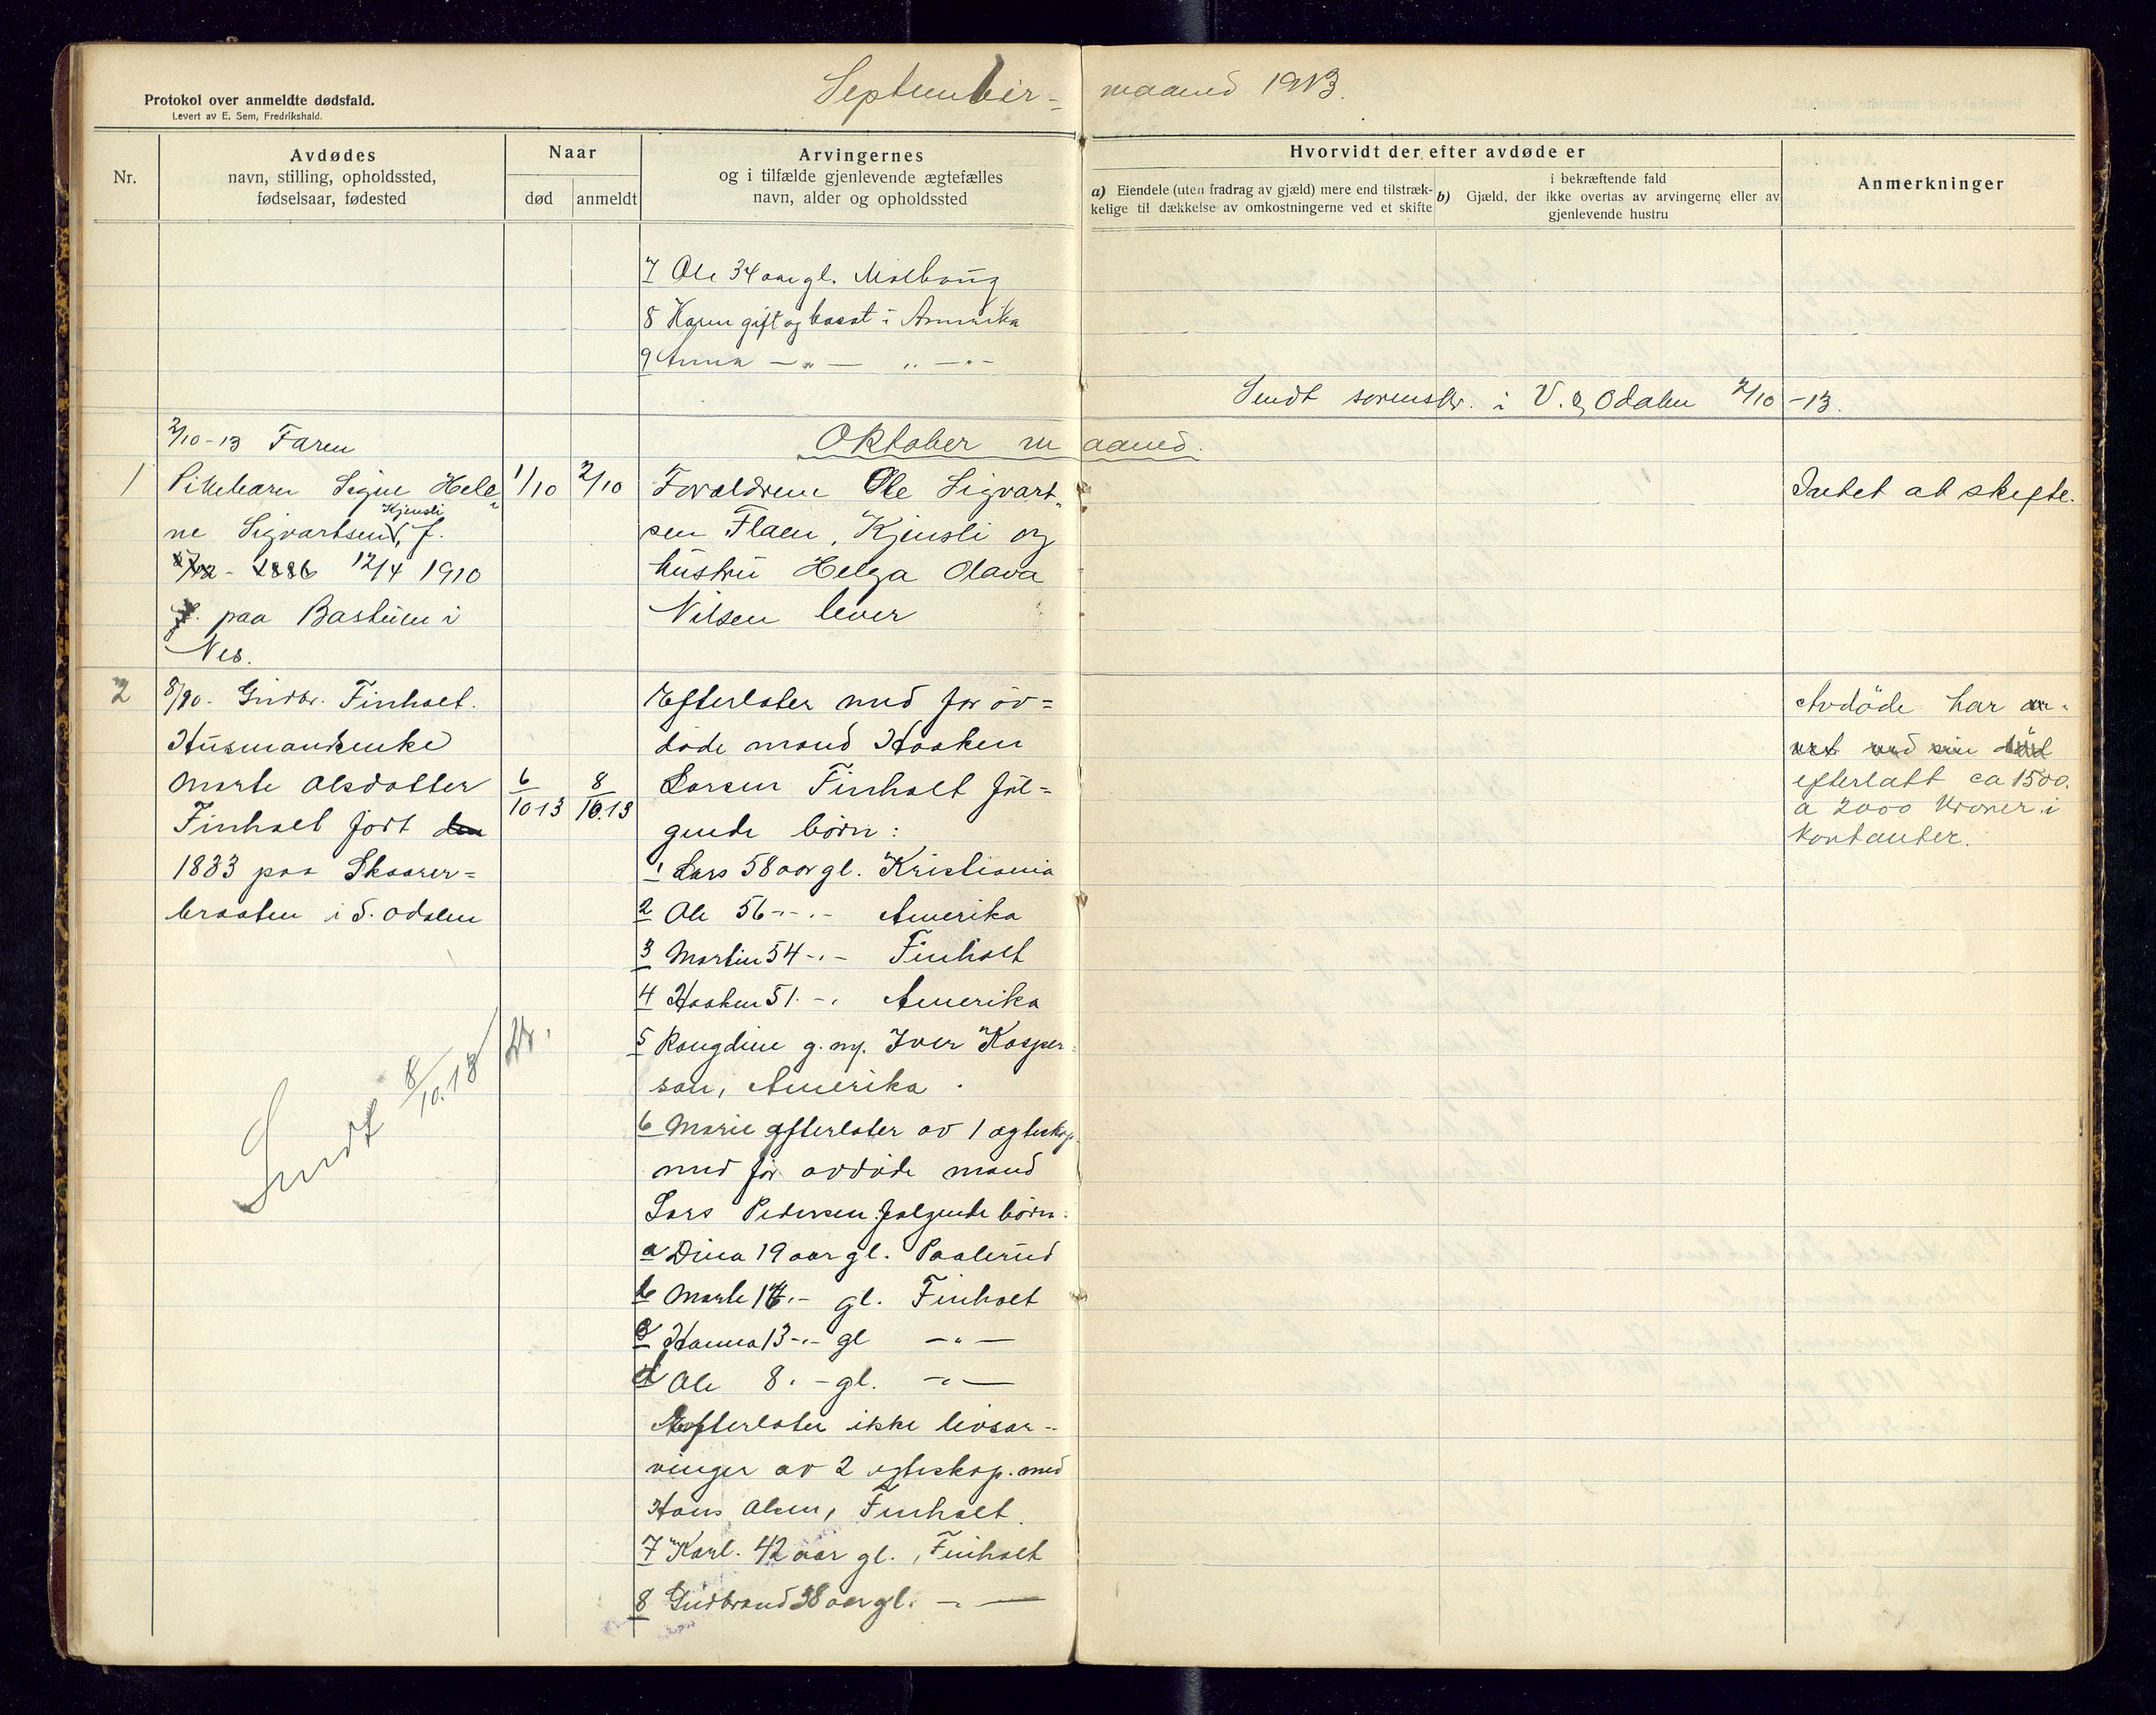 September- maaned 1913.
Protokol over anmeldte dødsfald.
Levert av E. Sem, Fredrikshald.
Nr.
Avdødes
navn, stilling, opholdssted,
fødselsaar, fødested
Naar
død
anmeldt
Arvingernes
og i tilfælde gjenlevende ægtefælles
navn, alder og opholdssted
Hvorvidt der efter avdøde er
a) Eiendele (uten fradrag av gjæld) mere end tilstræk-
kelige til dækkelse av omkostningerne ved et skifte
i bekræftende fald
b) Gjæld, der ikke overtas av arvingerne eller av
gjenlevende hustru
Anmerkninger
7 Ole 34 aar gl.
8 Karen gift og bosat i Amerika
9 Anna —"— " —"—
Sendt sorenskr. i V. & Odalen 2/10 -13.
Oktober maaned.
2/10-13 Faren
1
Pikebarn Signe Hele-
Kjensli
ne Sigvartsen, f.
12/4 1910
f. paa Bastuen i
Nes.
1/10
2/10
Forældrene Ole Sigvart-
sen Flaen, Kjensli og
hustru Helga Olava
Nilsen lever
Intet at skifte.
2
8/10. Gudbr. Finholt.
Husmandsenke
Marte Olsdatter
Finholt født den
1833 paa Skaarer=
braaten i S. Odalen
6
10 13
8
10.13
Efterlater med før av=
døde mand Haaken
Larsen Finholt føl=
gende børn:
1 Lars 58 aar gl. Kristiania
2 Ole 56 -"- Amerika
3 Martin 54 -"- Finholt
4 Haaken 51 -"- Amerika
5 Rangdine g. m. Iver Kasper-
son, Amerika.
6 Marie efterlater av 1 egteskap
med før avdøde mand
Lars Pedersen følgende børn:
a Dina 19 aar gl. Paalerud
b Marte 16 -"- gl. Finholt
c Hanna 13 -"- gl —"—
d Ole 8 -"- gl. —"—
Efterlater ikke livsar-
vinger av 2 egteskap. med
Hans Olsen, Finholt.
7 Karl. 42 aar gl., Finholt
8 Gudbrand 38 aar gl. —"—
Avdøde har
efterlatt ca 1500.
a 2000 kroner i
kontanter.
Sendt 8/10.13